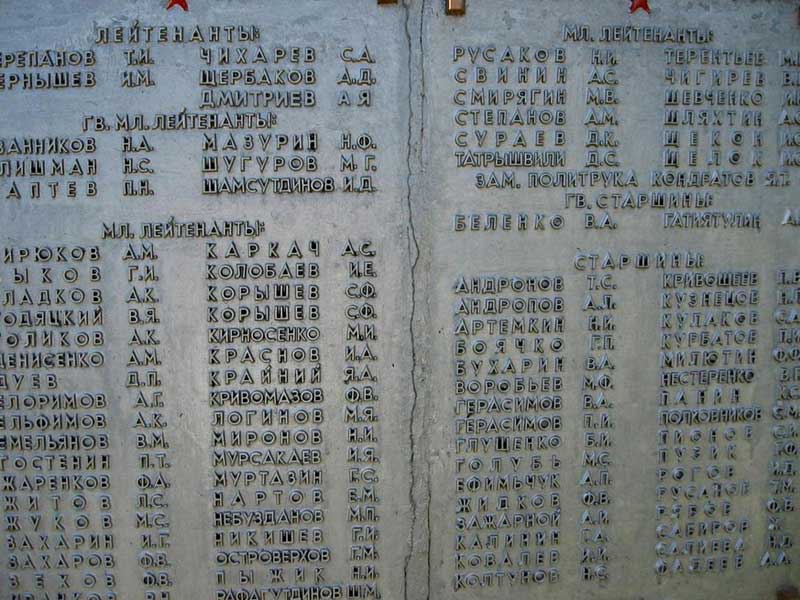 ЛЕЙТЕНАНТЫ:
Т.И. ЧИХАРЕВ С.А.
И.М. ЩЕРБАКОВ А.Д.
ДМИТРИЕВ А Я
ГВ. МЛ. ЛЕЙТЕНАНТЫ:
Н.А. МАЗУРИН Н.Ф.
Н.С. ШУГУРОВ М.Г.
П.Н. ШАМСУТДИНОВ И.Д.
МЛ. ЛЕЙТЕНАНТЫ:
А.М. КАРКАЧ А.С.
Г.И. КОЛОБАЕВ И.Е.
А.К. КОРЫШЕВ С.Ф.
В.Я. КОРЫШЕВ С.Ф.
А.К. КИРНОСЕНКО М.И.
ДЕНИСЕНКО А.М. КРАСНОВ И.А.
Д.П. КРАЙНИЙ Я.А.
А.Г. КРИВОМАЗОВ Ф.В.
А.К. ЛОГИНОВ М.Я.
В.М. МИРОНОВ Н.И.
П.Т. МУРСАКАЕВ И.Я.
ЖАРЕНКОВ Ф.А. МУРТАЗИН Г.С.
ЖИТОВ Л.С. НАРТОВ Е.М.
ЖУКОВ М.С. НЕБУЗДАНОВ М.П.
ЗАХАРИН И.Г. НИКИШЕВ Г.И.
ЗАХАРОВ Ф.В. ОСТРОВЕРХОВ Г.М.
ЗЕХОВ Ф.В. ПЫЖИК Н.И.
РАФАГУТДИНОВ Ш.М.
МЛ. ЛЕЙТЕНАНТЫ:
РУСАКОВ Н.И. ТЕРЕНТЬЕВ
СВИНИН А.С. ЧИГИРЕВ
СМИРЯГИН М.В. ШЕВЧЕНКО
СТЕПАНОВ А.М. ШЛЯХТИН
СУРАЕВ Д.К. ЩЕКОН
ТАТРЫШВИЛИ Д.С. ЩЕЛОК
ЗАМ. ПОЛИТРУКА КОНДРАТОВ Я.Т.
ГВ. СТАРШИНЫ:
БЕЛЕНКО В.А. ГАТИЯТУЛИН
СТАРШИНЫ:
АНДРОНОВ Т.С. КРИВОШЕЕВ
АНДРОПОВ А.П. КУЗНЕЦОВ
АРТЕМКИН Н.И. КУЛАКОВ
БОЯЧКО Г.П. КУРБАТОВ
БУХАРИН В.А. МИЛЮТИН
ВОРОБЬЕВ М.Ф. НЕСТЕРЕНКО
ГЕРАСИМОВ В.А. ПАНИН
ГЕРАСИМОВ П.И. ПОЛКОВНИКОВ
ГЛУЩЕНКО Б.И. ПИОНОВ
ГОЛУБЬ М.С. ПУЗИК
ЕФИМЬЧУК А.П. РОГОВ
ЖИДКОВ Ф.В. РУСАНОВ
ЗАЖАРНОЙ А.И.
КАЛИНИН САБИРОВ
КОВАЛЕВ И.И.
КОЛТУНОВ Н.С. ФАЛЕЕВ А.А.